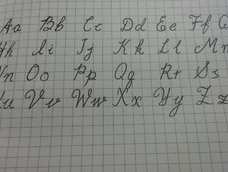 Aa Bb Cc Dd Ee Ff G
Hh Ii Jj Kk Ll M
Nn Oo Pp Qq Rr Ss
Uu Vv Ww Xx Yy Zz